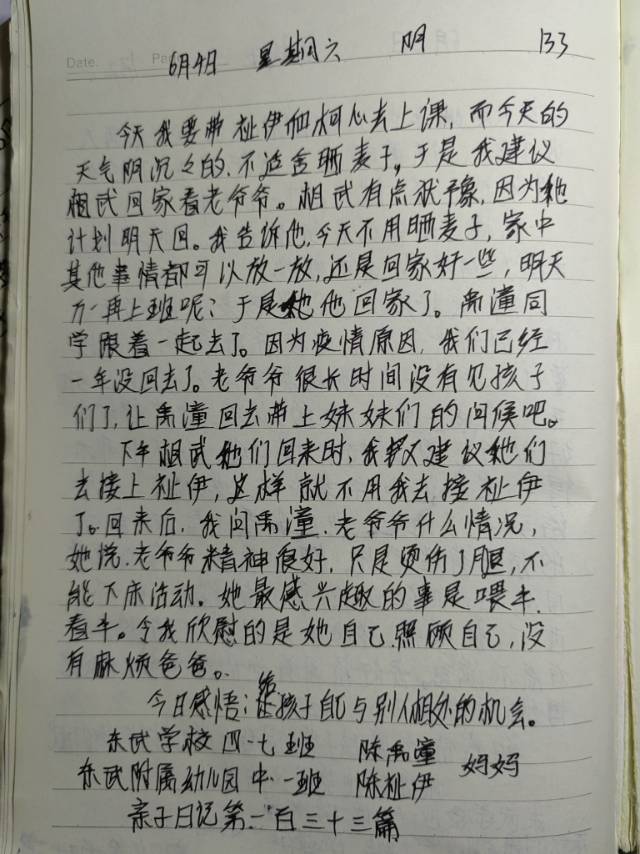 Date. Pa
6月4日 星期六 阴 133
今天我要带祉伊和柯心去上课,而今天的
天气阴沉々的,不适合晒麦子,于是我建议
相武回家看老爷爷。相武有点犹予,因为他
计划明天回。我告诉他,今天不用晒麦子,家中
其他事情都可以放一放,还是回家好一些,明天
万一再上班呢;于是他回家了。禹潼同
学跟着一起去了。因为疫情原因,我们已经
一年没回去了。老爷爷很长时间没有见孩子
们了,让禹潼回去带上妹妹们的问候吧。
下午相武他们回来时,我又建议他们
去接上祉伊,这样就不用我去接祉伊
了。回来后,我问禹潼,老爷爷什么情况,
她说,老爷爷精神很好,只是烫伤了腿,不
能下床活动。她最感兴趣的事是喂羊,
看羊。令我欣慰的是她自己照顾自己,没
有麻烦爸爸。
今日感悟:给孩子自己与别人相处的机会。
东武学校四·七班 陈禹潼 妈妈
东武附属幼儿园中·一班 陈祉伊
亲子日记第一百三十三篇